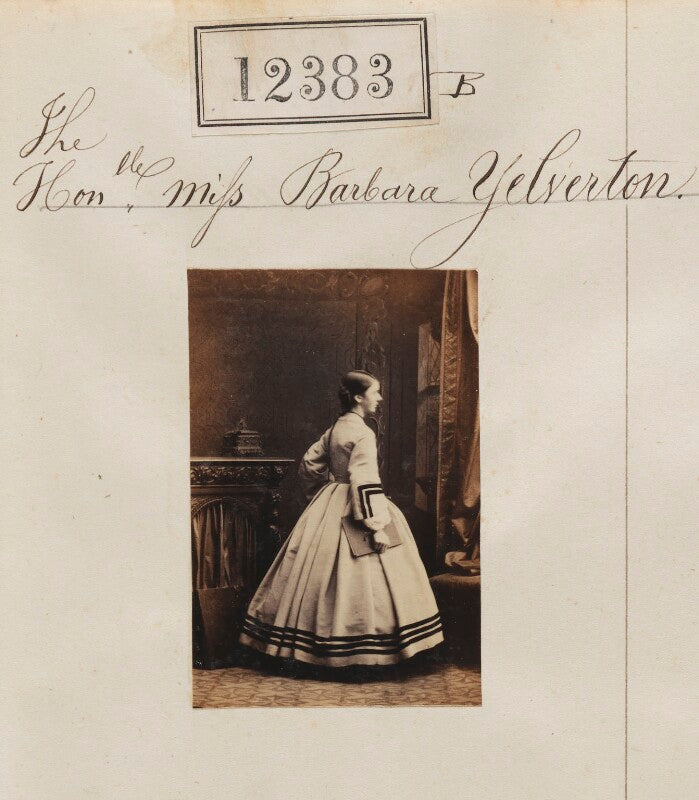 12383 B
The
Hon.ble Miss Barbara Yelverton.